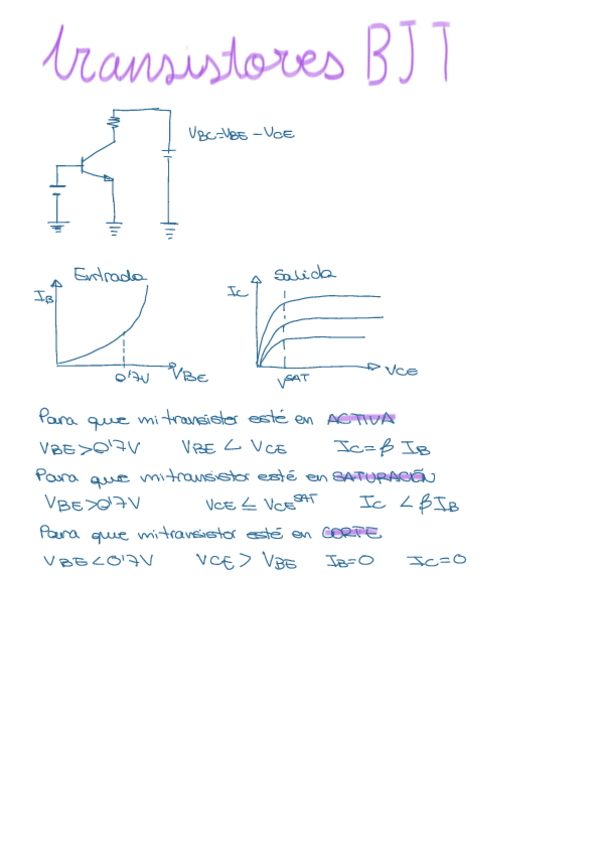 transistores BJT
VBC=VBE-VCE
Entrada
IB
0'7V
VBE
Salida
IC
VSAT
VCE
Para que mi transistor esté en ACTIVA
VBE>0'7V VBE < VCE IC=β IB
Para que mi transistor esté en SATURACIÓN
VBE>0'7V VCE ≤ VCE SAT IC < βIB
Para que mi transistor esté en CORTE
VBE<0'7V VCE > VBE IB=0 IC=0